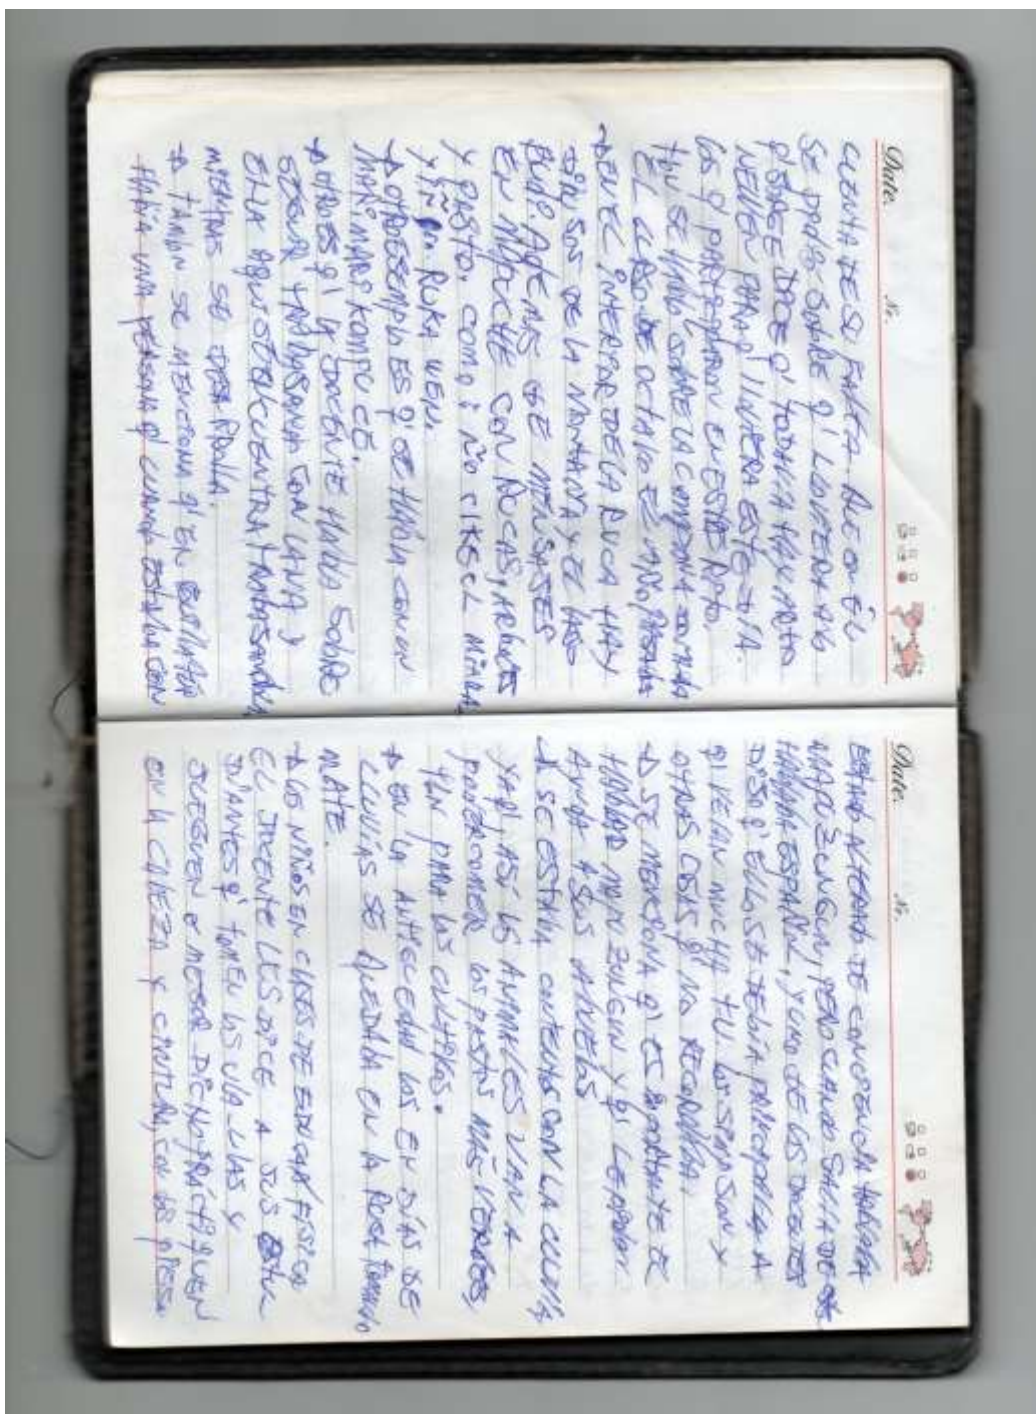 Date.
No.
CUENTA DE SU FALTA. ACE en EL
SE DIALOGO SOBRE q' LLOVIERA Algo
PORQUE DICE q' TODAVIA HAY MOTO
NIEVEN PARA q' LLOVIERA ESTE DIA.
LOS q' PARTICIPARON EN ESTE RPTO.
tbn SE HABLO SOBRE LA COMPAÑIA
EL CURSO DE OCTAVO EL AÑO PASADO
→ EN EL INTERIOR DE LA RUCA HAY
DE LA MONTAÑA Y EL LAGO
Budi. Además SE MENSAJES
EN MAPUCHE CON RUCAS, ARBOLES
Y PASTO, COMO:
Y RUKA WEN.
→ OTRO EJEMPLO ES q' SE HABLA CON UN
MARI MARI KOMPUCHE.
→ OTRO ES q' la DOCENTE HABLA SOBRE
SEGUIR TRABAJANDO CON LANA Y
ELLA AQUI SE ENCUENTRA TRABAJANDOLA
MIENTRAS SE DESARROLLA.
→ TAMBN SE MENCIONA q' EN
HABIA UNA PERSONA q' CUANDO ESTABA CON
Date.
No.
ESTADO ALTERADO DE CONCIENCIA HABLABA
MAPUZUNGUN, PERO CUANDO SALIA DE
HABLABA ESPAÑOL, Y UNO DE LOS DOCENTES
DIJO q' ELLO SE DEBIA PRINCIPALMENTE A
q' VEIAN MUCHA T.V. LOS SIMPSON Y
OTRAS COSAS q' NO RECORDABA.
→ SE MENCIONA q' ES IMPORTANTE EL
HABLAR MAPUZUNGUN Y q' LE PIDAN
AYUDA A SUS ABUELOS
→ SE ESTABA CONTENTOS CON LA LLUVIA
YA q' ASI LOS ANIMALES VAN A
PODER COMER LOS PASTOS MÁS VERDES,
tbn PARA LOS CULTIVOS.
→ EN LA ANTIGUEDAD LOS EN DÍAS DE
LLUVIAS SE QUEDABA EN LA RUCA TOMANDO
MATE.
→ LOS NIÑOS EN CLASES DE EDUCA. FISICA
EL DOCENTE LES DICE A SUS ESTU
DIANTES q' TOMEN LOS ULA-ULAS Y
JUEGUEN o MEJOR DICHO PRÁCTIQUEN
EN LA CABEZA Y CINTURA, CON LOS PIES